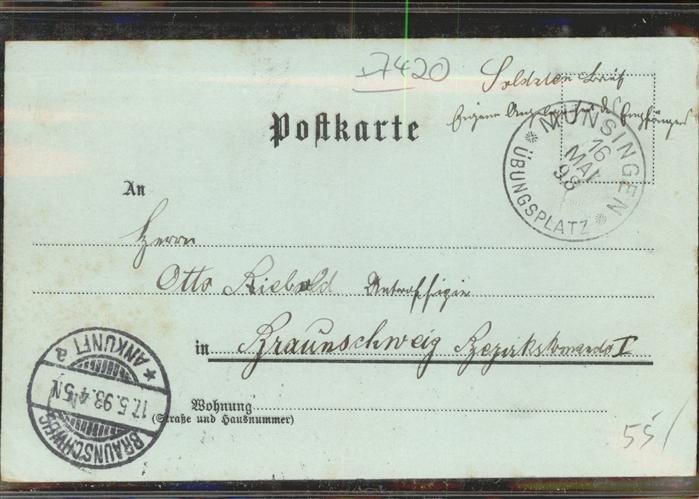 7420
Soldaten Brief
Eigene Angelegenheit des Empfängers
Postkarte
MÜNSINGEN
16
MAI
98
ÜBUNGSPLATZ
An
Herrn
Otto Riebold
in Braunschweig Bezirkskomando I
ANKUNFT a
17.5.98.4-5N
BRAUNSCHWEIG
Wohnung
(Straße und Hausnummer)
55/